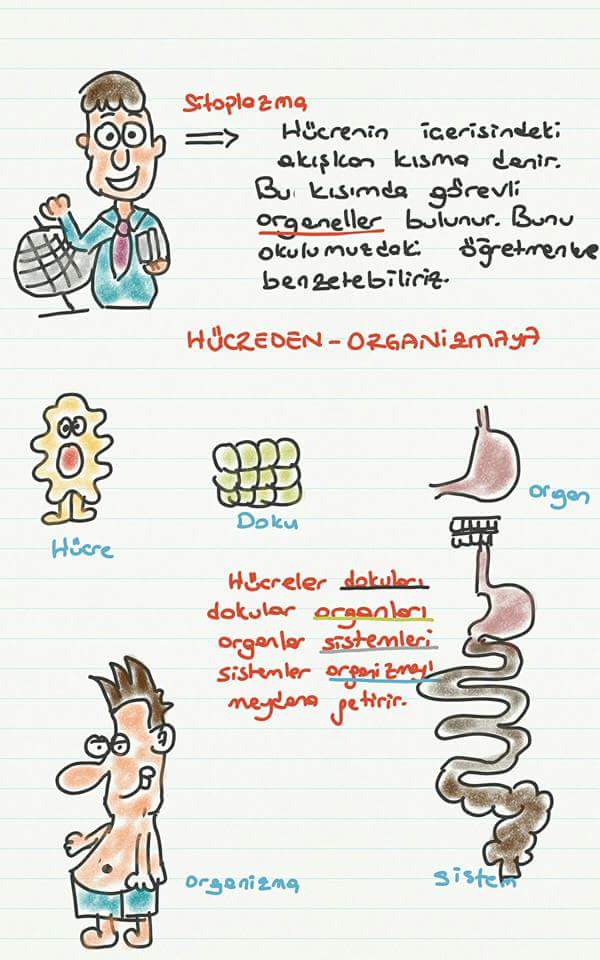 Sitoplazma
Hücrenin içerisindeki
akışkan kısma denir.
Bu kısımda görevli
organeller bulunur. Bunu
okulumuzdaki öğretmenlere
benzetebiliriz.
HÜCREDEN - ORGANİZMAYA
Hücre
Doku
organ
Hücreler dokuları
dokular organları
organlar sistemleri
sistemler organizmayı
meydana getirir.
organizma
sistem